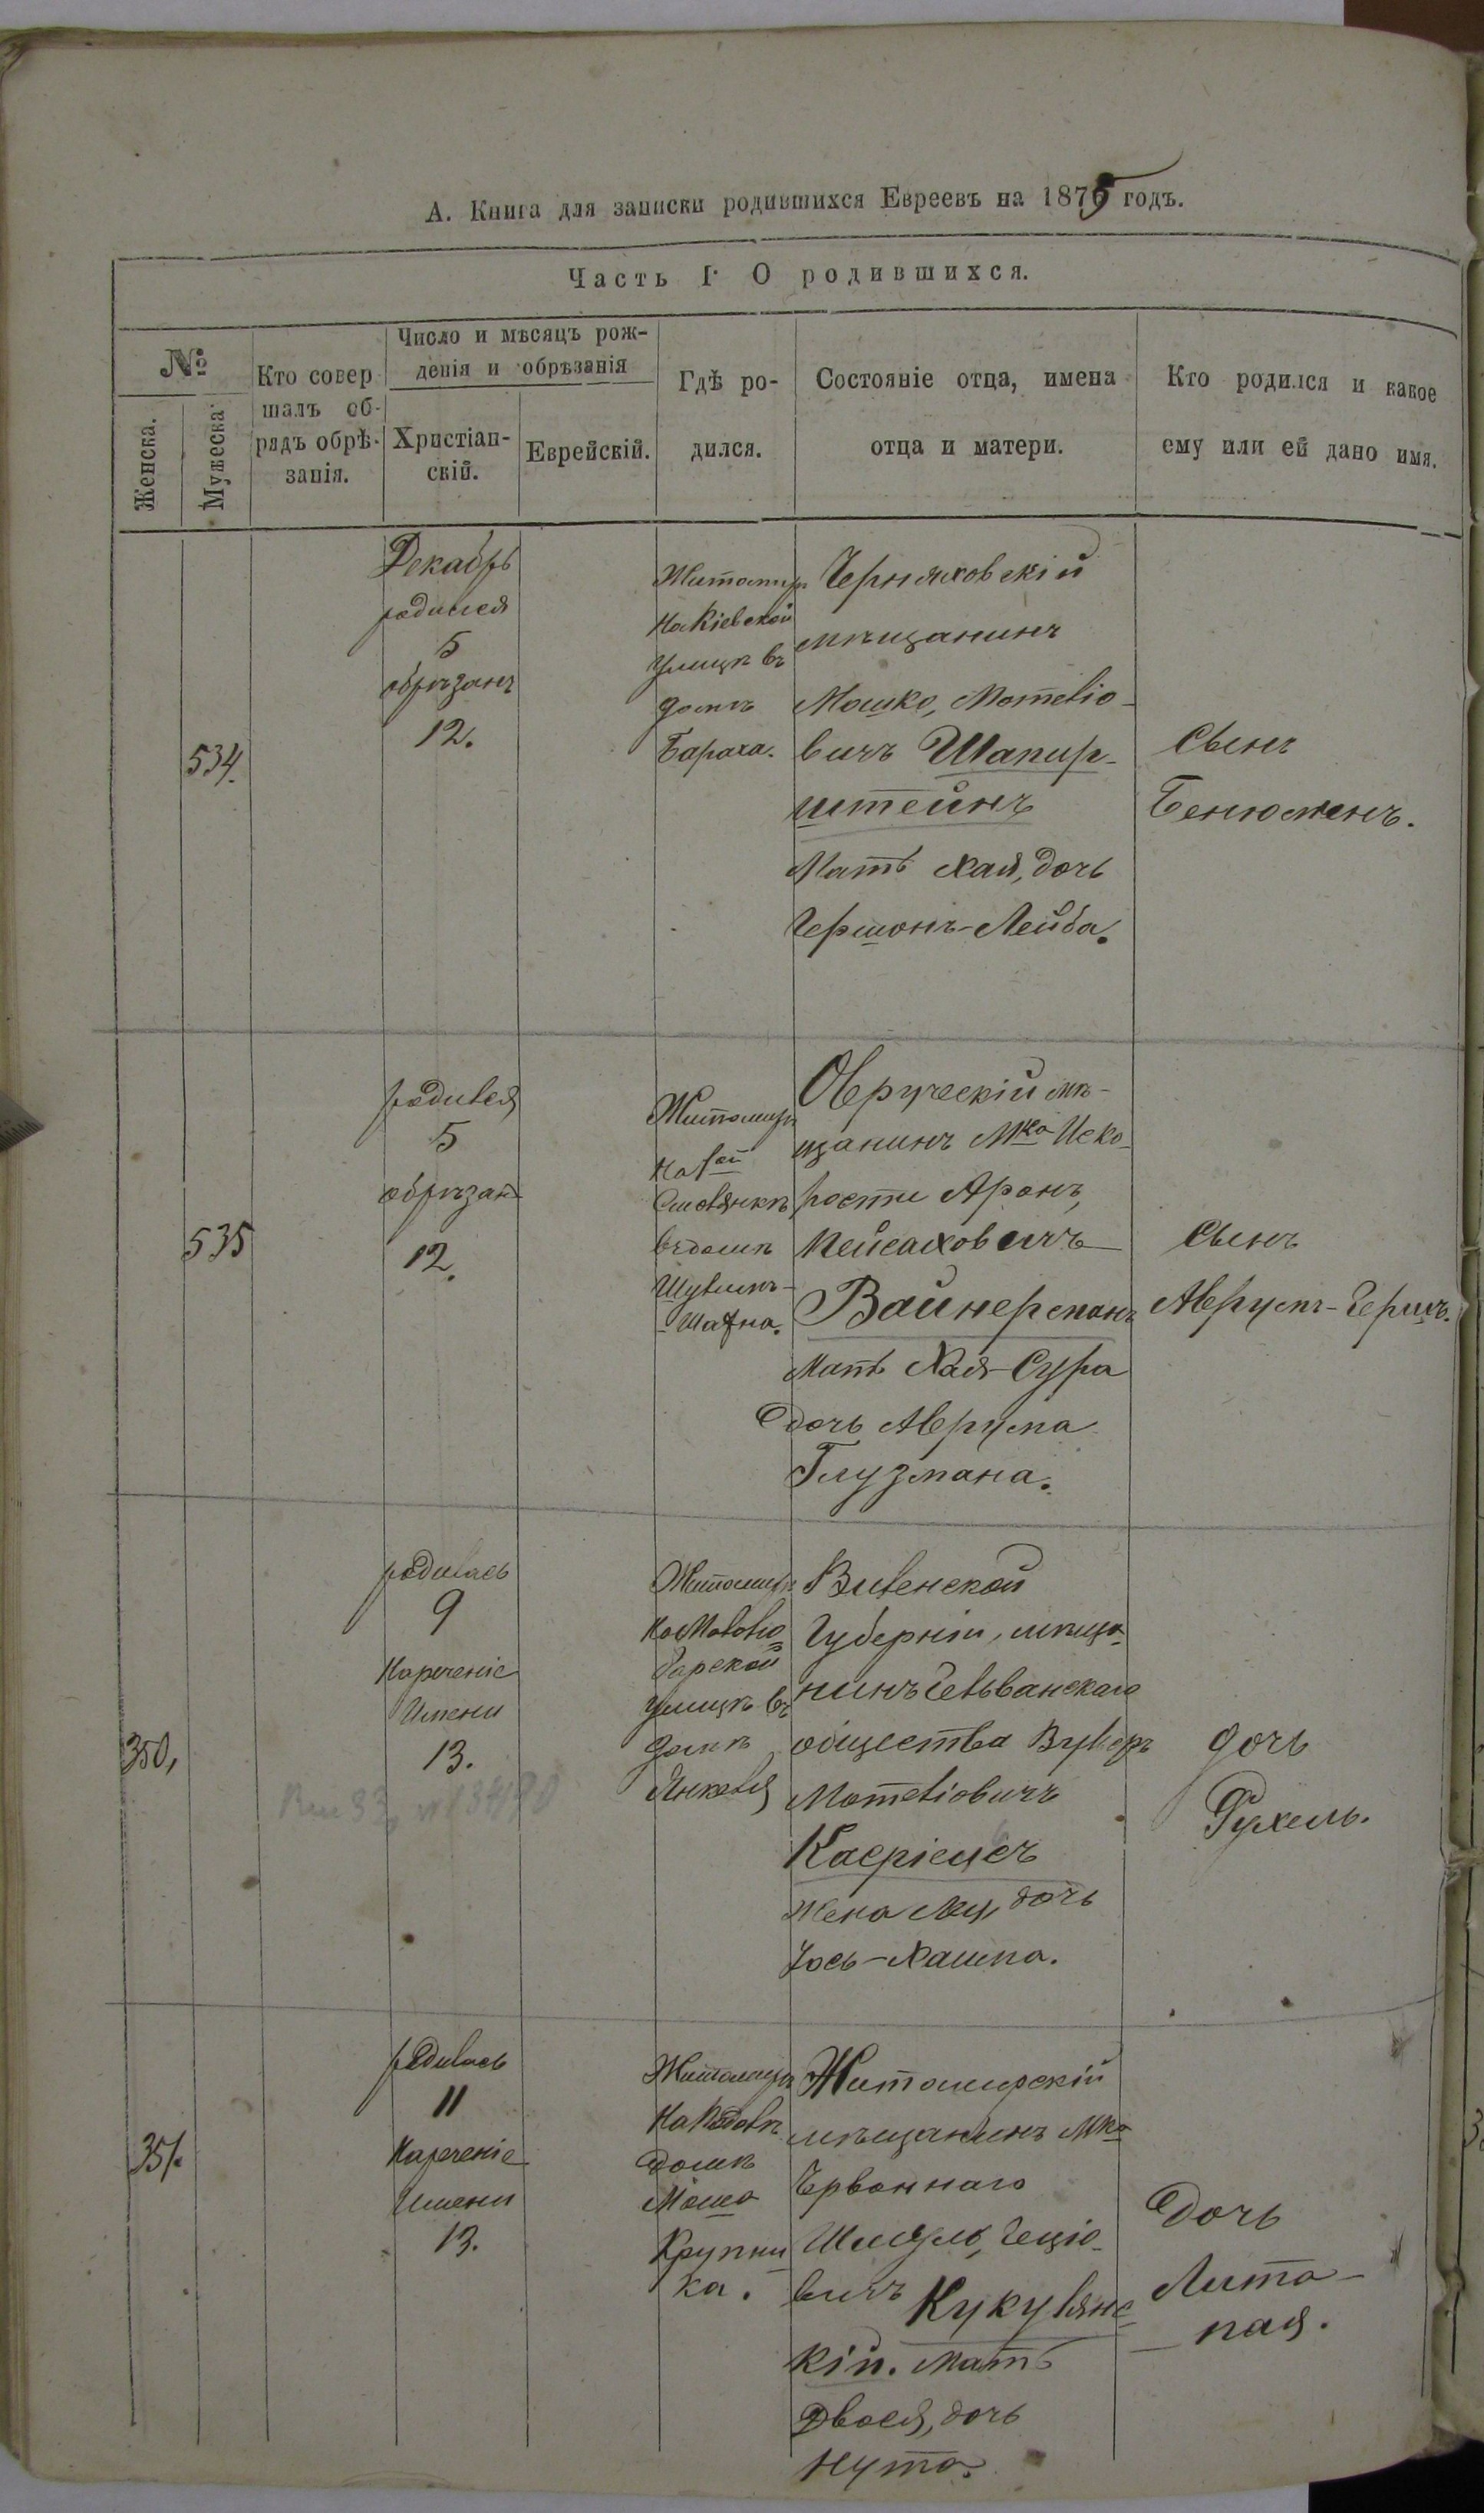 А. Книга для записки родившихся Евреевъ на 1875 годъ.
Часть I. О родившихся.
№
Женска.
Мужеска
Кто совер
шалъ об-
рядъ обрѣ-
занія.
Число и мѣсяцъ рож-
денія и обрѣзанія
Христіан-
скій.
Еврейскій.
Гдѣ ро-
дился.
Состояніе отца, имена
отца и матери.
Кто родился и какое
ему или ей дано имя.
534.
Декабрь
родился
5
обрѣзанъ
12.
Житомиръ
на Кіевской
улицѣ въ
домѣ
Бараха.
Черняховскій
мѣщанинъ
Мошко, Мотеліо-
вичъ Шапир-
штейнъ
Мать Хая, дочь
Гершонъ-Лейба.
Сынъ
Бенюменъ.
535
родился
5
обрѣзанъ
12.
Житомиръ
на 1ой
въ домѣ
Шулимъ-
Овруческій мѣ-
щанинъ Мка Иско-
рости Аронъ,
Пейсаховичъ
Вайнерманъ
Мать Хая-Сура
дочь Аврума
Глузмана.
Сынъ
Аврумъ-Гершъ.
350,
родилась
9
Нареченіе
Имени
13.
Житомиръ
улицѣ въ
домѣ
Янкеля
Виленской
Губерніи, мѣща-
нинъ Гельванскаго
общества Вульфъ
Мотеліовичъ
Касріелсъ
Жена Лея, дочь
Іось-Хаима.
дочь
Рухель.
351.
родилась
11
Нареченіе
Имени
13.
Житомиръ
на Подолѣ
домѣ
Мошо
Крупни
ка.
Житомирскій
мѣщанинъ Мка
Червоннаго
Шмуль, Геціо-
вичъ Кукулянс
кій. Мать
Двося, дочь
Нута.
дочь